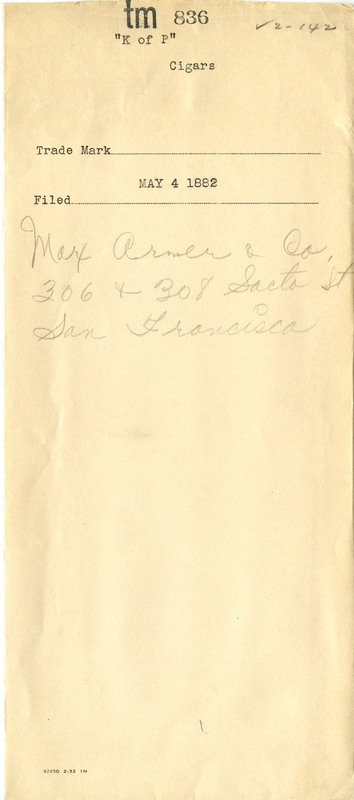 tm 836
✓2-142
"K of P"
Cigars
Trade Mark
MAY 4 1882
Filed
Max Armer & Co.
306 & 308 Sacto St
San Francisco
97030 2-32 1M